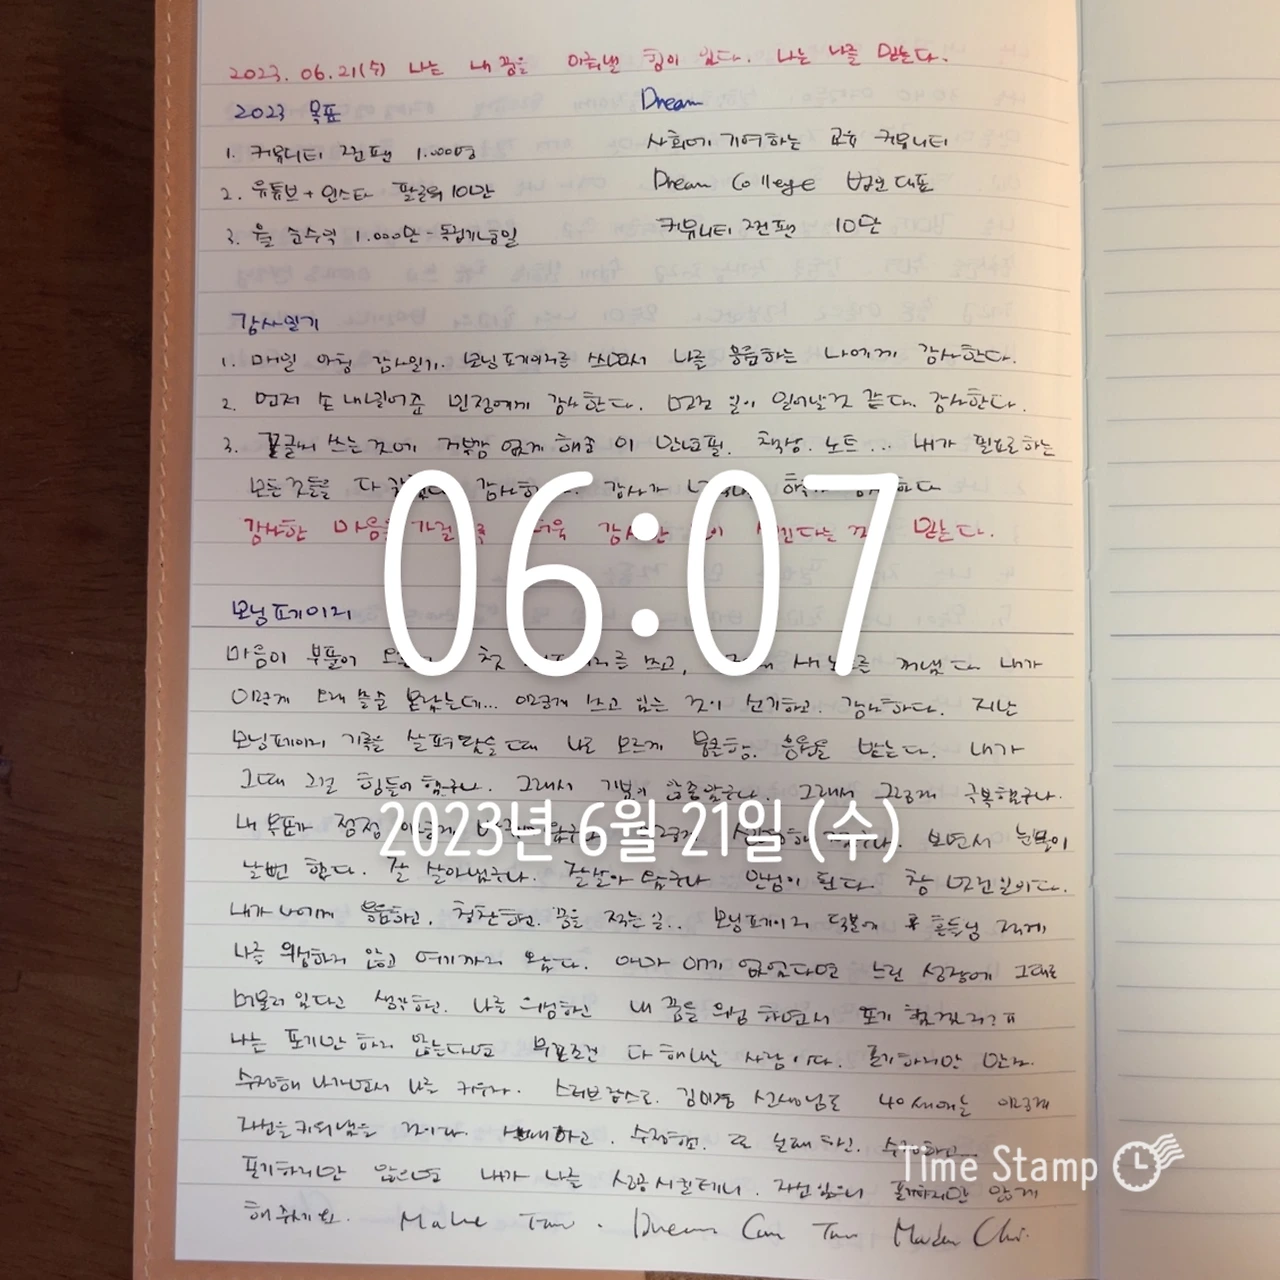 2023. 06. 21(수) 나는 내 꿈을 이뤄낼 힘이 있다. 나는 나를 믿는다.
2023 목표
Dream
1. 커뮤니티 찐팬 1.000명
사회에 기여하는 교육 커뮤니티
2. 유튜브 + 인스타 팔로워 10만
Dream College 법인 대표
3. 월 순수익 1.000만 - 독립기능일
커뮤니티 찐팬 10만
감사일기
1. 매일 아침 감사일기. 모닝페이지를 쓰면서 나를 응원하는 나에게 감사한다.
2. 먼저 손 내밀어준 민정에게 감사한다. 멋진 일이 일어날것 같다. 감사한다.
3. 글씨 쓰는 것에 거부감 없게 해준 이 만년필. 책상. 노트... 내가 필요로 하는
모든 것들을 다 감사가
감사한 마음을 가질 더욱 감사한 생긴다는 것 믿는다.
06:07
모닝페이지
마음이 부풀어 첫 쓰고, 새 노트를 꺼냈다 내가
이렇게 오래 쓸줄 몰랐는데... 이렇게 쓰고 있는 것이 신기하고. 감사하다. 지난
모닝페이지 기록을 살펴봤을 때 나도 모르게 뭉클함. 응원을 받는다. 내가
그때 그걸 힘들어 했구나. 그래서 기분이 안좋았구나. 그래서 그렇게 극복했구나.
내 목표가 점점 이렇게 보면서 눈물이
2023년 6월 21일 (수)
날뻔 했다. 잘 살아냈구나. 잘 살아 왔구나 안심이 된다 참 멋진일이다.
내가 나에게 응원하고, 칭찬하고. 꿈을 적는 글.. 모닝페이지 덕분에 흔들림 적게
나를 의심하지 않고 여기까지 왔다. 아마 이게 없었다면 느린 성장에 그대로
머물러 있다고 생각하고. 나를 의심하고 내 꿈을 의심 하면서 포기 했겠지? ㅠ
나는 포기만 하지 않는다면 무조건 다 해내는 사람이다. 포기하지만 말자.
수정해 나가면서 나를 키우자. 스터브잡스도. 김미경 선생님도 40세에는 이렇게
자신을 키워냈을 것이다. 실패하고. 수정하고. 또 실패하고. 수정하고...
포기하지만 않으면 내가 나를 성공시킬테니. 자신있으니 포기하지만 않게
해주세요. Make Dream Can
Time Stamp